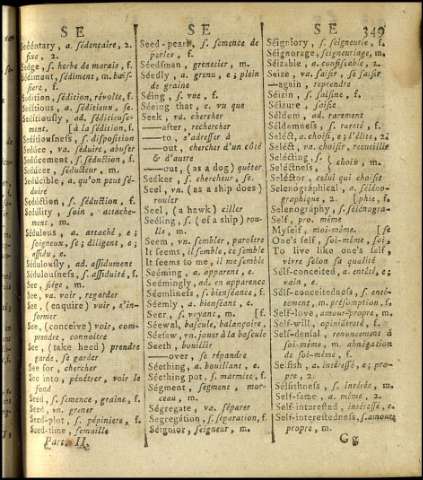 SE
SE
SE
349
Sédentary, a. sédentaire, 2.
fixe, 2.
Sedge, s. herbe de marais, f.
Sédiment, sédiment, m. baissiere, f.
Sedition, sédition, révolte, f.
Séditious, a. séditieux, se.
Séditiously, ad. séditieuse-
ment. [à la sédition, f.
Séditiousness, s. disposition
Séduce, va. séduire, abuser
Sédúcement, s. séduction, f.
Sédúcer, séducteur, m.
Sédúcible, a. qu'on peut sé-
duire
Séduction, s. séduction, f.
Sédúlity, soin, attache-
ment, m.
Sédulous, a. attaché, e;
soigneux, se; diligent, e;
assidu, e.
Sédulously, ad. assidument
Sédulousness, s. assiduité, f.
See, siége, m.
See, va. voir, regarder
See, (enquire) voir, s'in-
former
See, (conceive) voir, com-
prendre, connoitre
See, (take heed) prendre
garde, se garder
See for, chercher
See into, pénétrer, voir le
fond
Seed, s. semence, graine, f.
Seed, vn. grener
Seed-plot, s. pépiniere, f.
Seed-time, semaille
Part II.
Seed-pearl, s. semence de
perles, f.
Séedsman, grenetier, m.
Séedly, a. grenu, e; plein
de graine
Séeing, s. vue, f.
Séeing that, c. vu que
Seek, va. chercher
—after, rechercher
—to, s'adresser à
—out, chercher d'un côté
& d'autre
—out, (as a dog) quéter
Séeker, s. chercheur, se.
Seel, vn. (as a ship does)
rouler
Seel, (a hawk) ciller
Séeling, s. (of a ship) rou-
lis, m.
Seem, vn. sembler, paroitre
It seems, il semble, ce semble
It seems to me, il me semble
Séeming, a. apparent, e.
Séemingly, ad. en apparence
Séemliness, s. bienséance, f.
Séemly, a. bienséant, e.
Seer, s. voyant, m. [f.
Séewal, bascule, balançoire,
Séesaw, vn. jouer à la bascule
Seeth, bouillir
—over, se répandre
Séething, a. bouillant, e.
Séething pot, s. marmite, f.
Ségment, segment, mor-
ceau, m.
Ségregate, va. séparer
Segregátion, s. séparation, f.
Séignior, seigneur, m.
Séigniory, s. seigneurie, f.
Seignorage, seigneuriage, m.
Séizable, a. confisable, 2.
Seize, va. saisir, se saisir
—again, reprendre
Séizin, s. saisine, f.
Séizure, saisie
Séldem, ad. rarement
Séldemness, s. rareté, f.
Seléct, a. choisi, e; d'élite, 2.
Seléct, va. choisir, recueillir
Selécting, s. } choix, m.
Seléctness,
Seléctor, celui qui choisit
Selenográphical, a. séléno-
graphique, 2. [phie, f.
Selenógraphy, s. sélénogra-
Self, pro. même
Myself, moi-même. [se
One's self, soi-même, soi-
To live like one's self,
vivre selon sa qualité
Self-conceited, a. entêté, e;
vain, e.
Self-conceitedness, s. entê-
tement, m. présomption, f.
Self-love, amour-propre, m.
Self-will, opiniâtreté, f.
Self-denial, renoncement à
soi-même, m. abnégation
de soi-même, f.
Selfish, a. intéressé, e; pro-
pre, 2.
Sélfishness, s. intérêt, m.
Self-same, a. même, 2.
Self-interested, intéressé, e.
Self-interestedness, s. amour
propre, m.
Gg